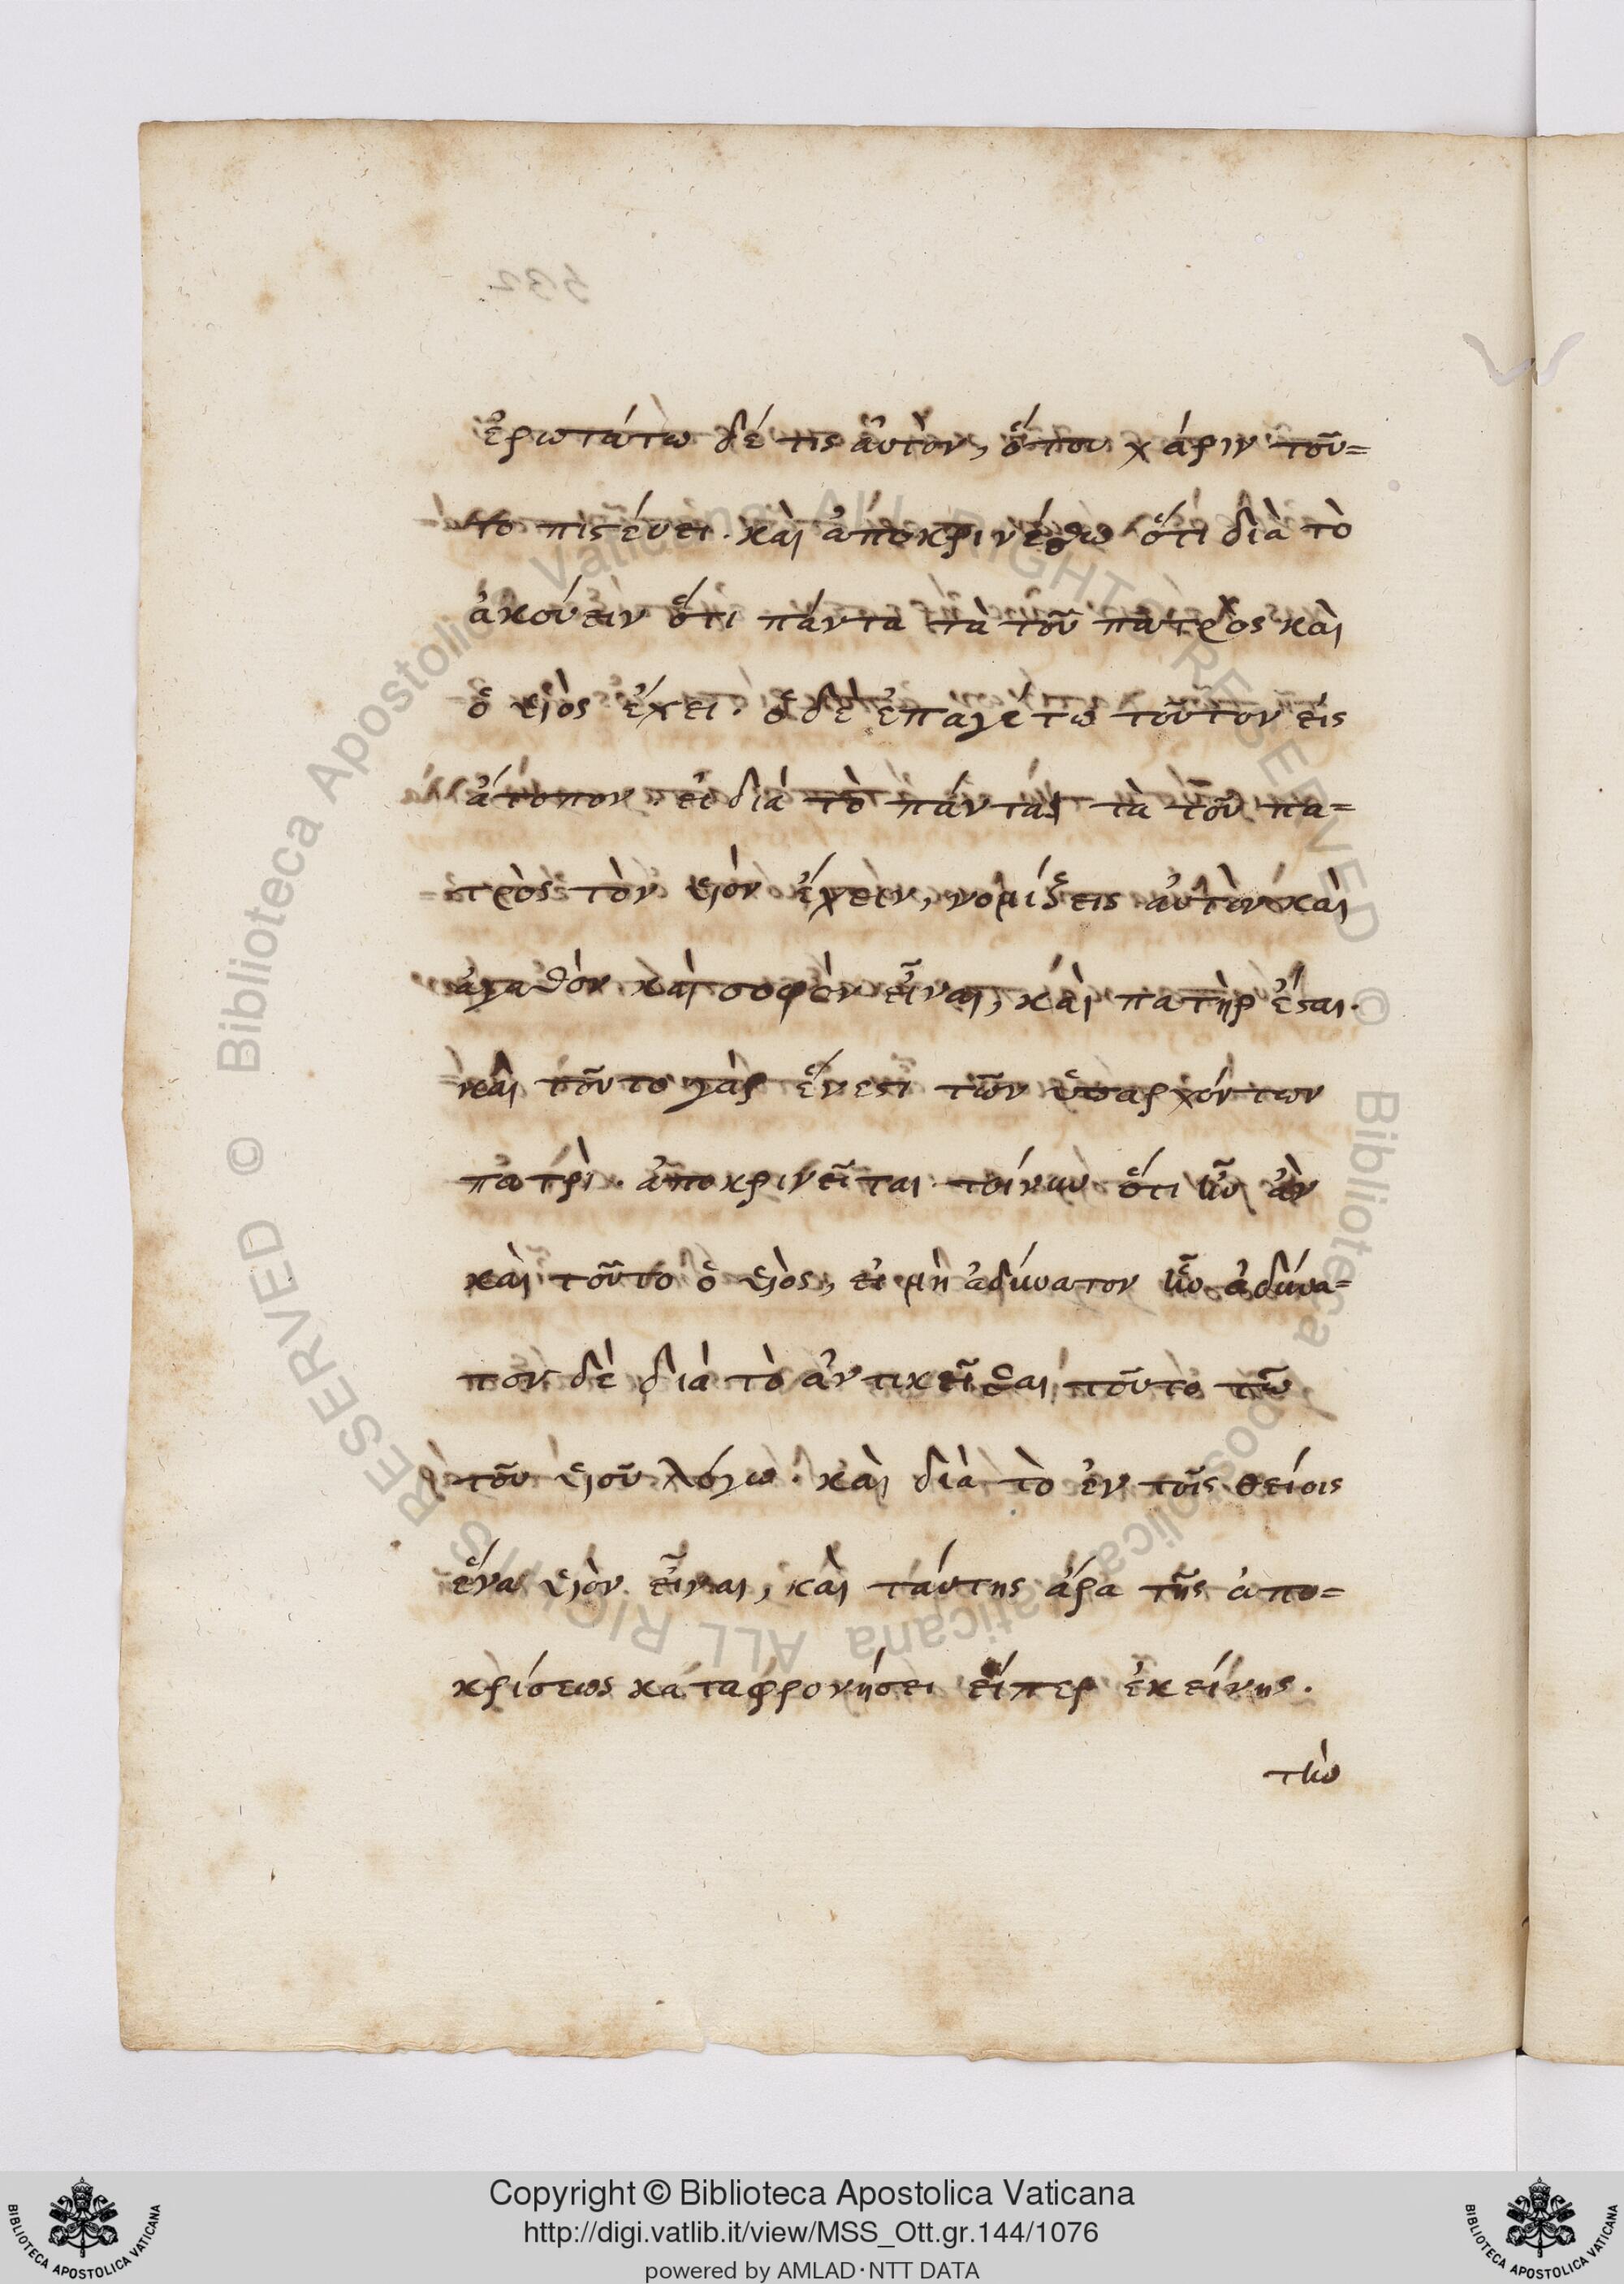 532
ἐρωτάτω δέ τις αὐτὸν, ὅτου χάριν τοῦ=
το πιστεύει. καὶ ἀποκρινέσθω ὅτι διὰ τὸ
ἀκούειν ὅτι πάντα τὰ τοῦ πατρὸς καὶ
ὁ υἱὸς ἔχει. ὁ δὲ ἐπαγέτω τοῦτον εἰς
ἄτοπον. εἰ διὰ τὸ πάντα τὰ τοῦ πα=
τρὸς τὸν υἱὸν ἔχειν, νομίζεις αὐτὸν καὶ
ἀγαθὸν καὶ σοφὸν εἶναι, καὶ πατὴρ ἔσται.
καὶ τοῦτο γὰρ ἔνεστι τῶν ὑπαρχόντων
πατρὶ. ἀποκρινεῖται τοίνυν ὅτι ἦν ἂν
καὶ τοῦτο ὁ υἱὸς, εἰ μὴ ἀδύνατον ἦν ἀδύνα=
τον δὲ διὰ τὸ ἀντικεῖσθαι τοῦτο τῶ
τοῦ υἱοῦ λόγω. καὶ διὰ τὸ ἐν τοῖς θείοις
ἕνα υἱὸν εἶναι, καὶ ταύτης ἄρα τῆς ἀπο=
κρίσεως καταφρονήσει εἴπερ ἐκείνης.
τὴν
Copyright © Biblioteca Apostolica Vaticana
http://digi.vatlib.it/view/MSS_Ott.gr.144/1076
powered by AMLAD·NTT DATA
BIBLIOTECA APOSTOLICA VATICANA
BIBLIOTECA APOSTOLICA VATICANA
© Biblioteca Apostolica Vaticana ALL RIGHTS RESERVED © Biblioteca Apostolica Vaticana ALL RIGHTS RESERVED